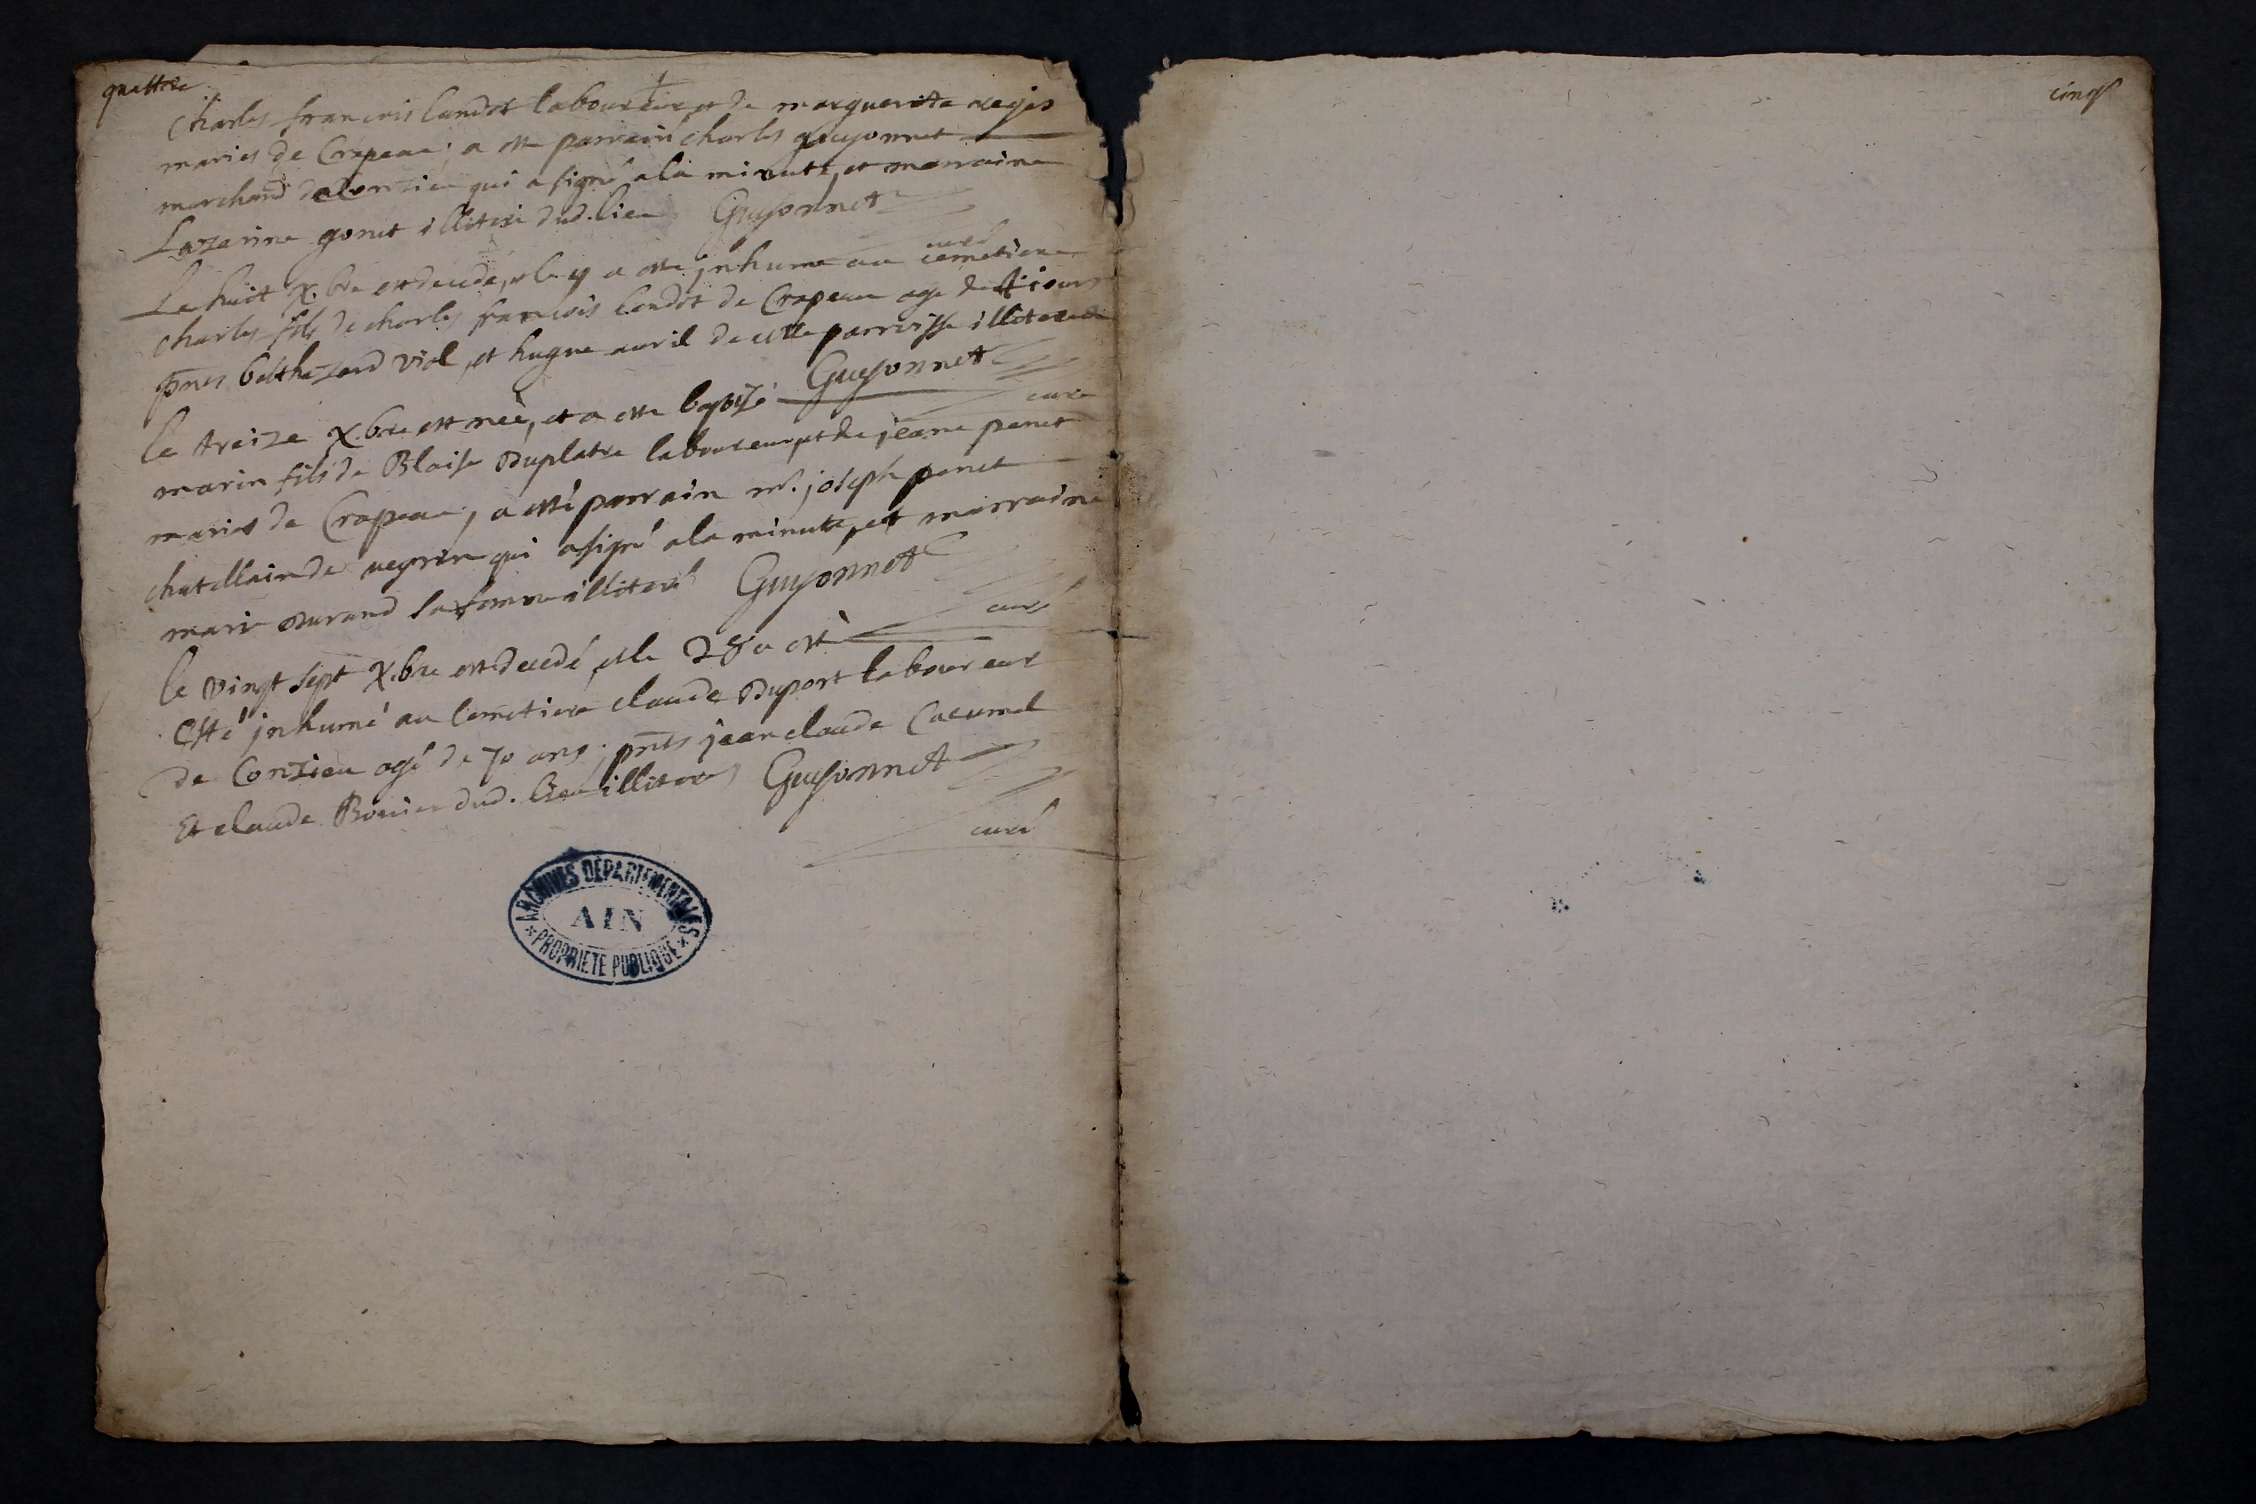 quattre
charles francois landot laboureur, et de marguerite regis
maries de Crapeau; a este parrain charles guyonnet
marchand de Conzieu qui a signé a la minute, et marraine
Lazarine gonet illiteré dud. lieu Guyonnet
curé
Le huit X.bre est decede, et le 9 a este jnhume au cemetiere
charles fils de charles francois landot de Crapeau age de jours
pnts balthezard viol, et hugue avril de cette parroisse illiteres
Guyonnet
curé
le treize X.bre est née, et a este baptizé
marin fils de Blaise Duplatre laboureur, et de jeane penet
maries de Crapeau, a esté parrain mr. joseph penet
chatellain de qui a signé a la minute, et marraine
marie Durand sa femme illiteré Guyonnet
curé
le vingt sept X.bre est decedé, et le 28 a esté
Esté jnhumé au Cemetiere claude Duport laboureur
de Conzieu agé de 70 ans; pnts jean claude
Et claude Bouvier dud. lieu illiteres Guyonnet
curé
ARCHIVES DEPARTEMENTALES
AIN
PROPRIETE PUBLIQUE
cinq